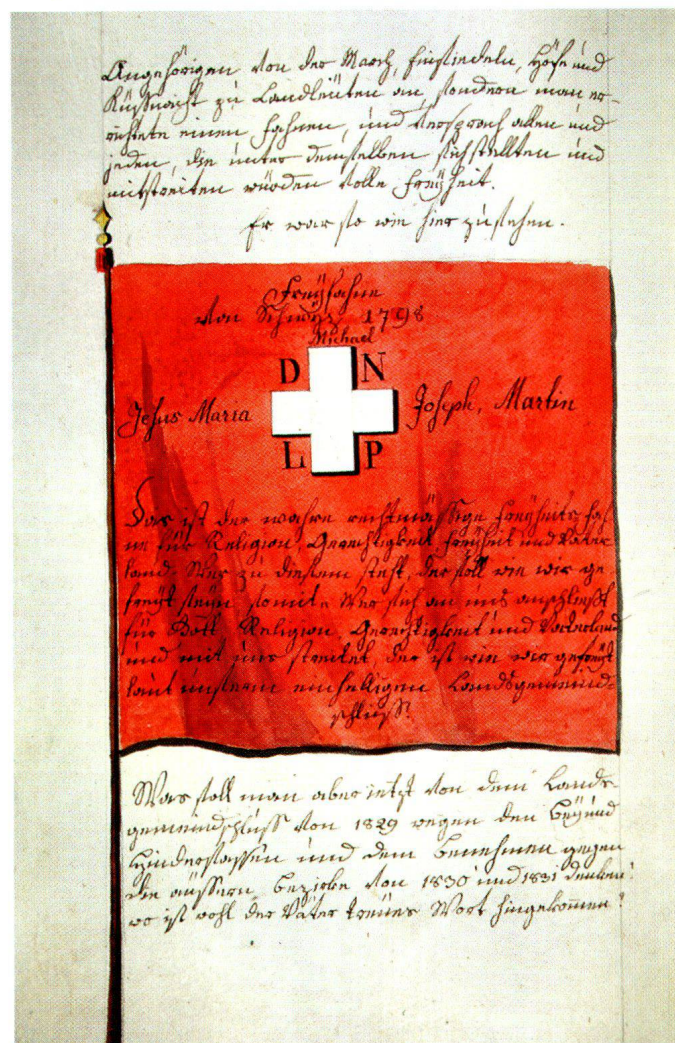 Angehörigen von der March, Einsiedeln, Höfe und
Küßnacht zu Landleüten an, sondern man er-
richtete einen Fahnen, und versprach allen und
jeden, die unter demselben sich stellten und
mitstreiten würden volle Freÿheit.
Er war so wie hier zu sehen.
Freÿfahne
von Schwÿz 1798
Michael
D N
Jesus Maria Joseph, Martin
L P
Das ist der wahre rechtmässige Freÿheits fah-
ne für Religion, Gerechtigkeit Freÿheit und Vater
land. Wer zu diesem steht, der soll wie wir ge
freÿt seÿn somit. Wer sich an uns anschließt
für Gott Religion, Gerechtigkeit und Vaterland
und mit uns streitet, der ist wie wir gefreÿt
laut unserm einhelligen Landsgemeind-
schluß.
Was soll man aber jetzt von dem Lands-
gemeindschluß von 1829 wegen den Beÿ und
Hindersassen und dem benehmen gegen
die äussern bezirke von 1830 und 1831 denken?
wo ist wohl der Väter treües Wort hingekommen?